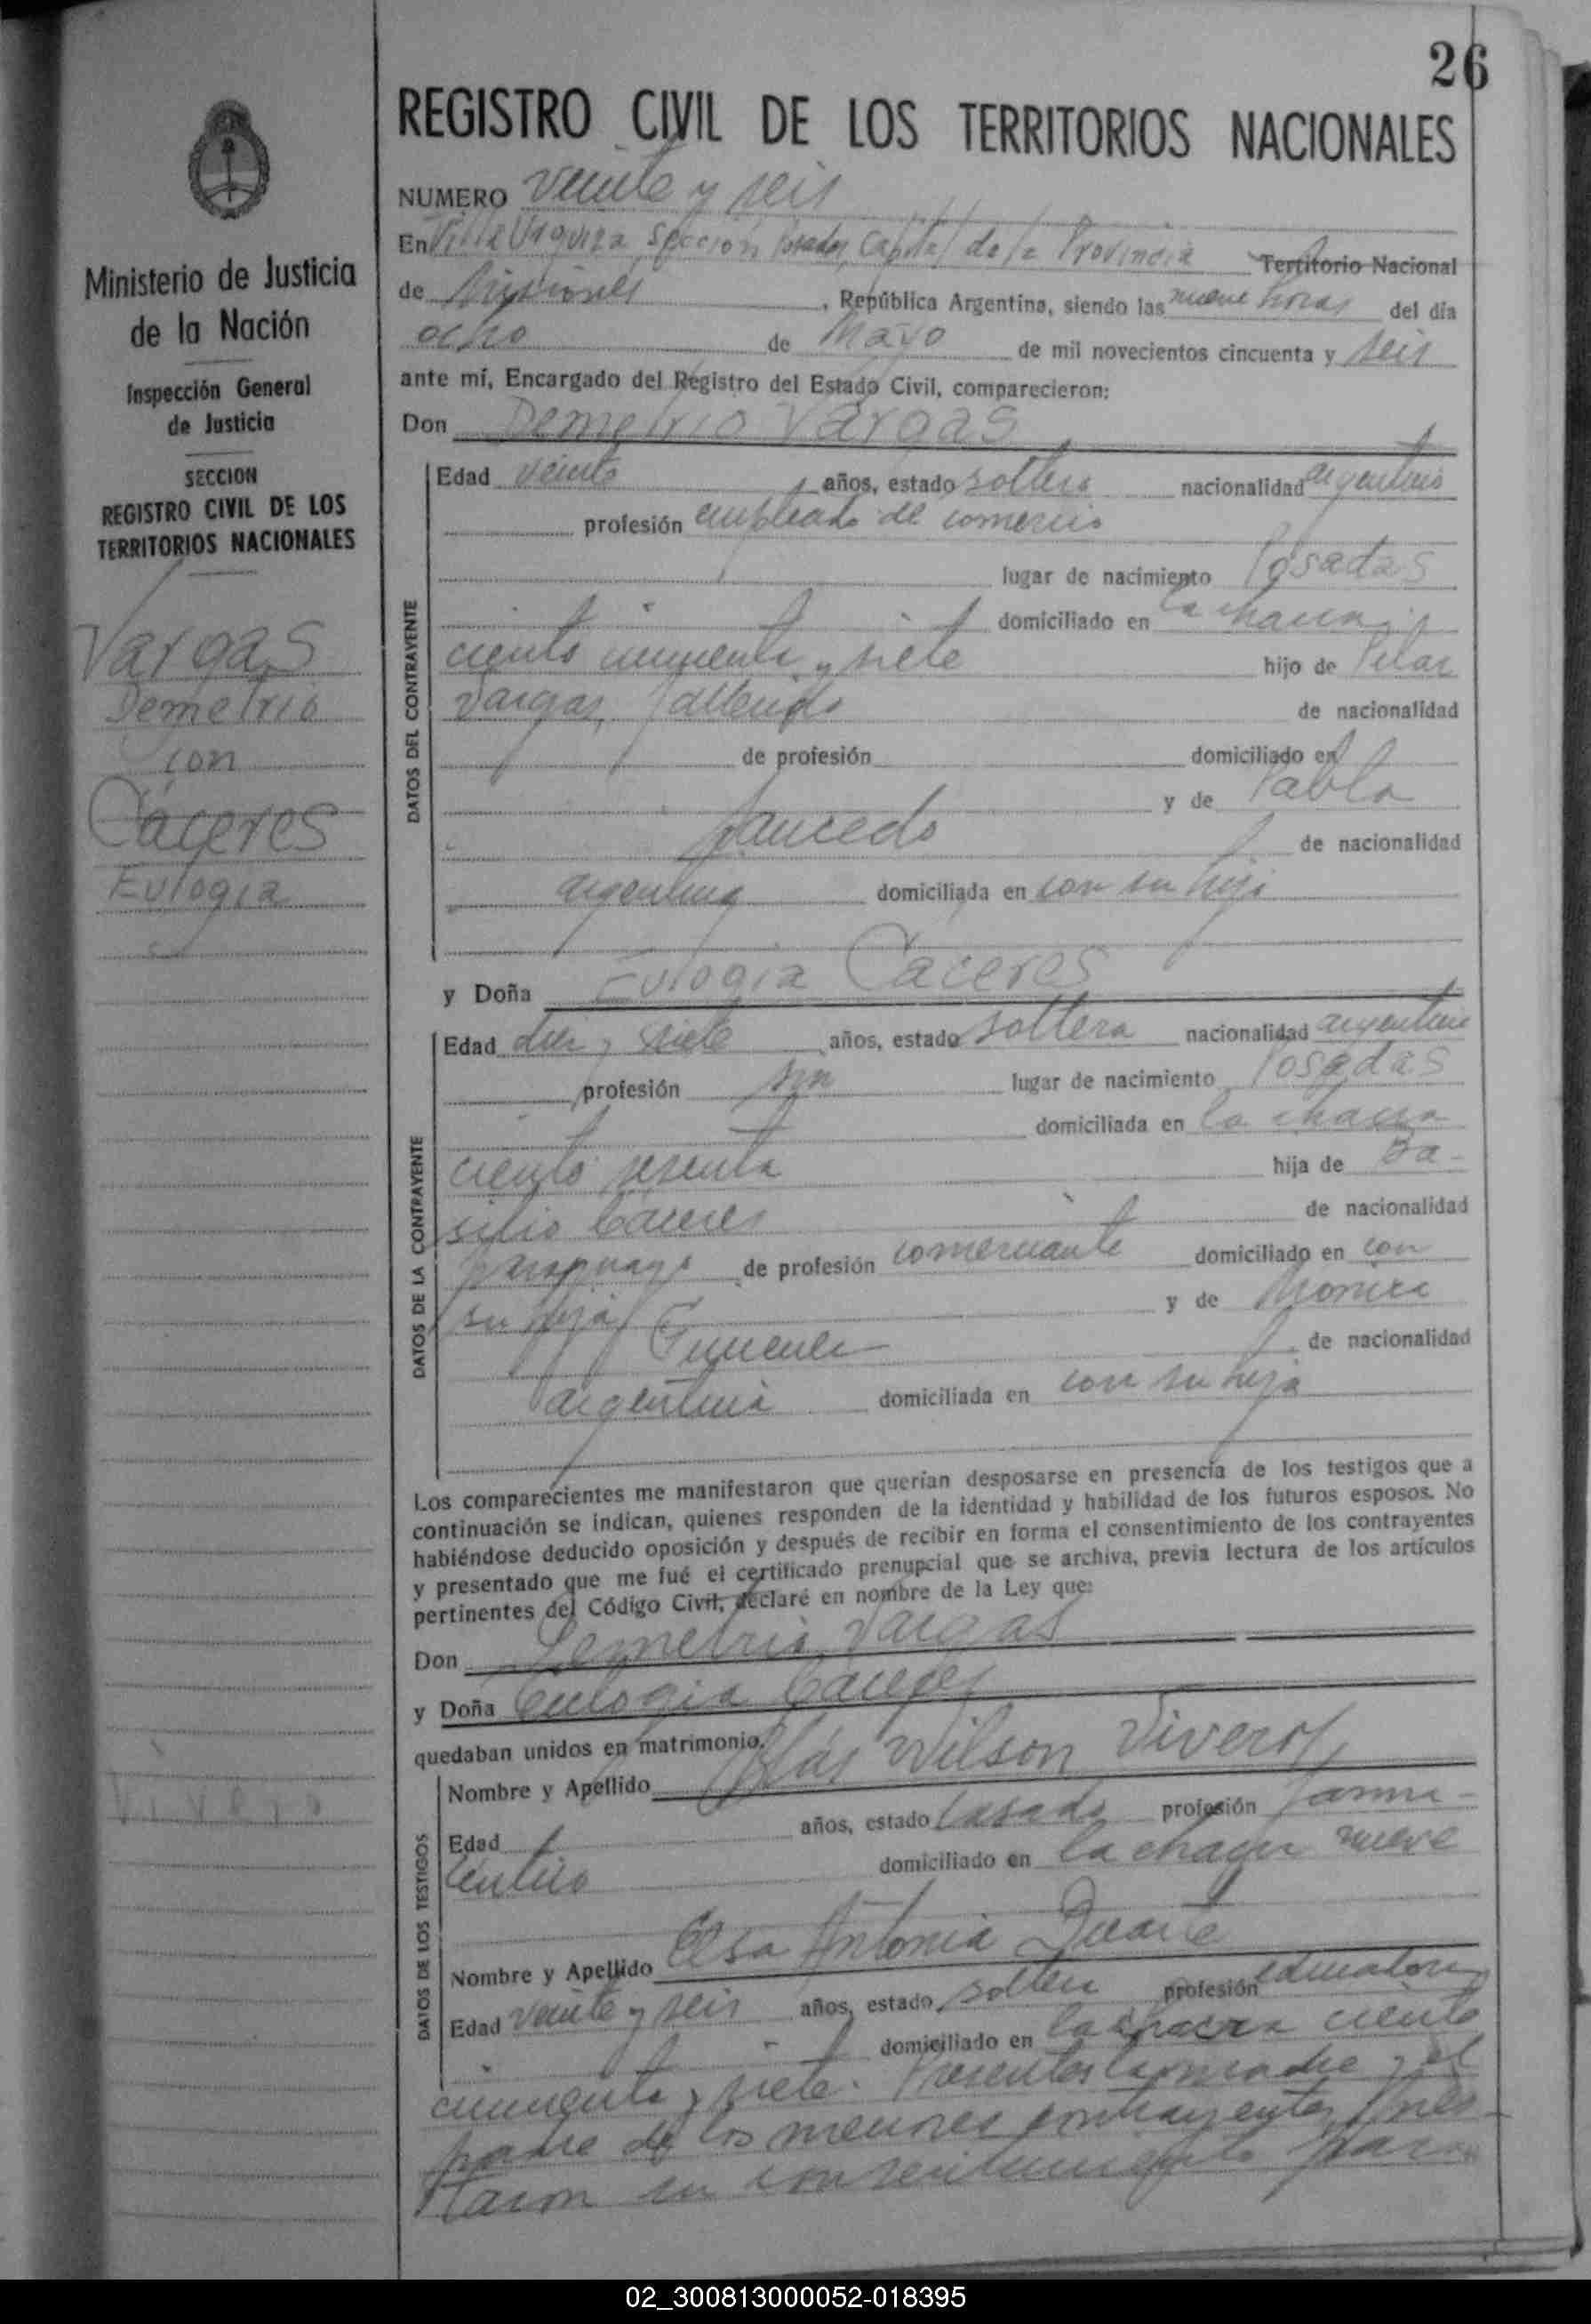 26
REGISTRO CIVIL DE LOS TERRITORIOS NACIONALES
Ministerio de Justicia
de la Nación
Inspección General
de Justicia
SECCION
REGISTRO CIVIL DE LOS
TERRITORIOS NACIONALES
Vargas
Demetrio
con
Cáceres
Eulogia
NUMERO veinte y seis
En Villa Urquiza Sección Posadas, Capital de la Provincia Territorio Nacional
de Misiones, República Argentina, siendo las nueve horas del día
ocho de Mayo de mil novecientos cincuenta y seis
ante mí, Encargado del Registro del Estado Civil, comparecieron:
Don Demetrio Vargas
DATOS DEL CONTRAYENTE
Edad veinte años, estado soltero nacionalidad argentino
profesión empleado de comercio
lugar de nacimiento Posadas
domiciliado en la chacra
ciento cincuenta y siete hijo de Pilar
Vargas, fallecido de nacionalidad
de profesión domiciliado en
y de Pabla
Saucedo de nacionalidad
argentina domiciliada en con su hijo
y Doña Eulogia Cáceres
DATOS DE LA CONTRAYENTE
Edad diez y siete años, estado soltera nacionalidad argentina
profesión sin lugar de nacimiento Posadas
domiciliada en la chacra
ciento sesenta hija de Ba-
silio Cáceres de nacionalidad
paraguayo de profesión comerciante domiciliado en con
su hija y de Mónica
de nacionalidad
argentina domiciliada en con su hija
Los comparecientes me manifestaron que querían desposarse en presencia de los testigos que a
continuación se indican, quienes responden de la identidad y habilidad de los futuros esposos. No
habiéndose deducido oposición y después de recibir en forma el consentimiento de los contrayentes
y presentado que me fué el certificado prenupcial que se archiva, previa lectura de los artículos
pertinentes del Código Civil, declaré en nombre de la Ley que:
Don Demetrio Vargas
y Doña Eulogia Cáceres
quedaban unidos en matrimonio.
DATOS DE LOS TESTIGOS
Nombre y Apellido Blás Wilson Viveros
Edad años, estado casado profesión farma-
ceutico domiciliado en la chacra nueve
Nombre y Apellido Elsa Antonia Duarte
Edad veinte y seis años, estado soltera profesión educadora
domiciliado en la chacra ciento
cincuenta y siete. Presentes la madre y el
padre de los menores contrayentes, pres-
taron su consentimiento para
02_300813000052-018395